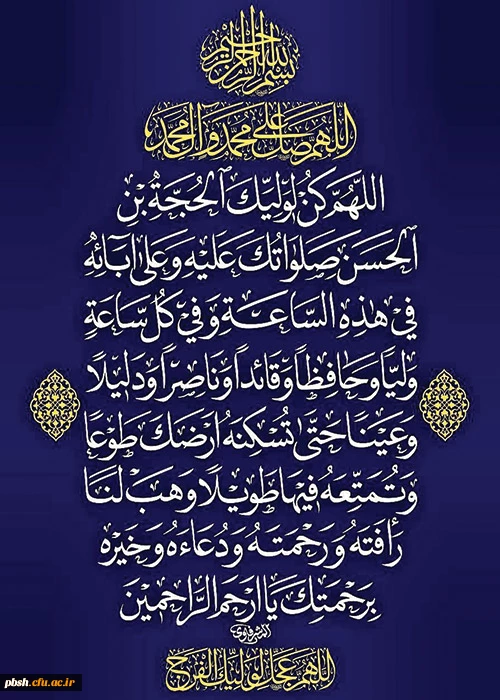 بسم الله الرحمن الرحیم
اللهم صل علی محمد و آل محمد
اللّهُمَّ كُنْ لِوَلِيِّكَ الحُجَّةِ بْنِ
الحَسَنِ صَلَواتُكَ عَلَيْهِ وَعَلى آبائِهِ
في هذِهِ السّاعَةِ وَفي كُلِّ ساعَةٍ
وَلِيّاً وَحافِظاً وَقائِداً وَناصِراً وَدَليلاً
وَعَيْناً حَتّى تُسْكِنَهُ أَرْضَكَ طَوْعاً
وَتُمَتِّعَهُ فيها طَويلاً وَهَبْ لَنا
رَأْفَتَهُ وَرَحْمَتَهُ وَدُعاءَهُ وَخَيْرَهُ
بِرَحْمَتِكَ يا أَرْحَمَ الرّاحِمينَ
اللهم عجل لوليك الفرج
pbsh.cfu.ac.ir